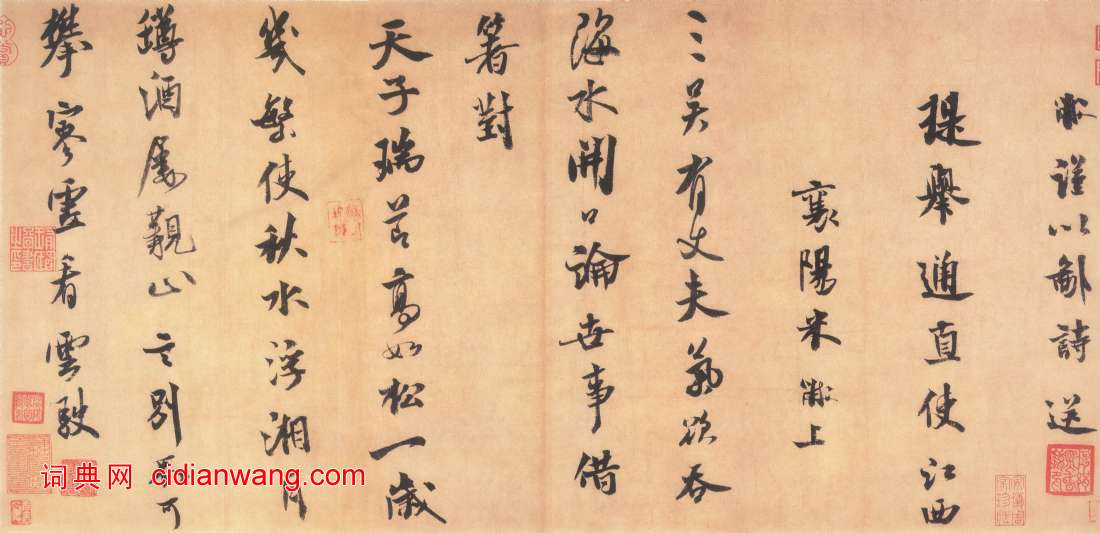 黻謹以鄙詩送
提舉通直使江西
襄陽米黻上
三吳有丈夫氣欲吞
海水開口論世事借
箸對
天子瑞節高如松一歲
幾繁使秋水浮湘月
罇酒屢觀山言別不可
攀寥霊看雲駛
词典网 cidianwang.com